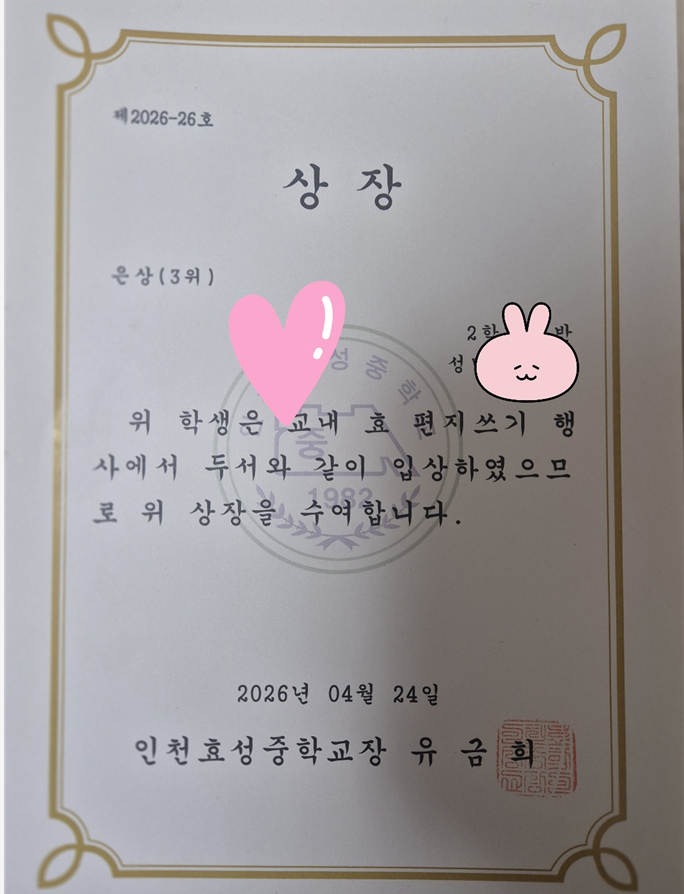 제2026-26호
상 장
은상(3위)
2학 반
성
성중학
위 학생은 교내 효 편지쓰기 행
사에서 두서와 같이 입상하였으므
로 위 상장을 수여합니다.
중
1982
2026년 04월 24일
인천효성중학교장 유 금 희